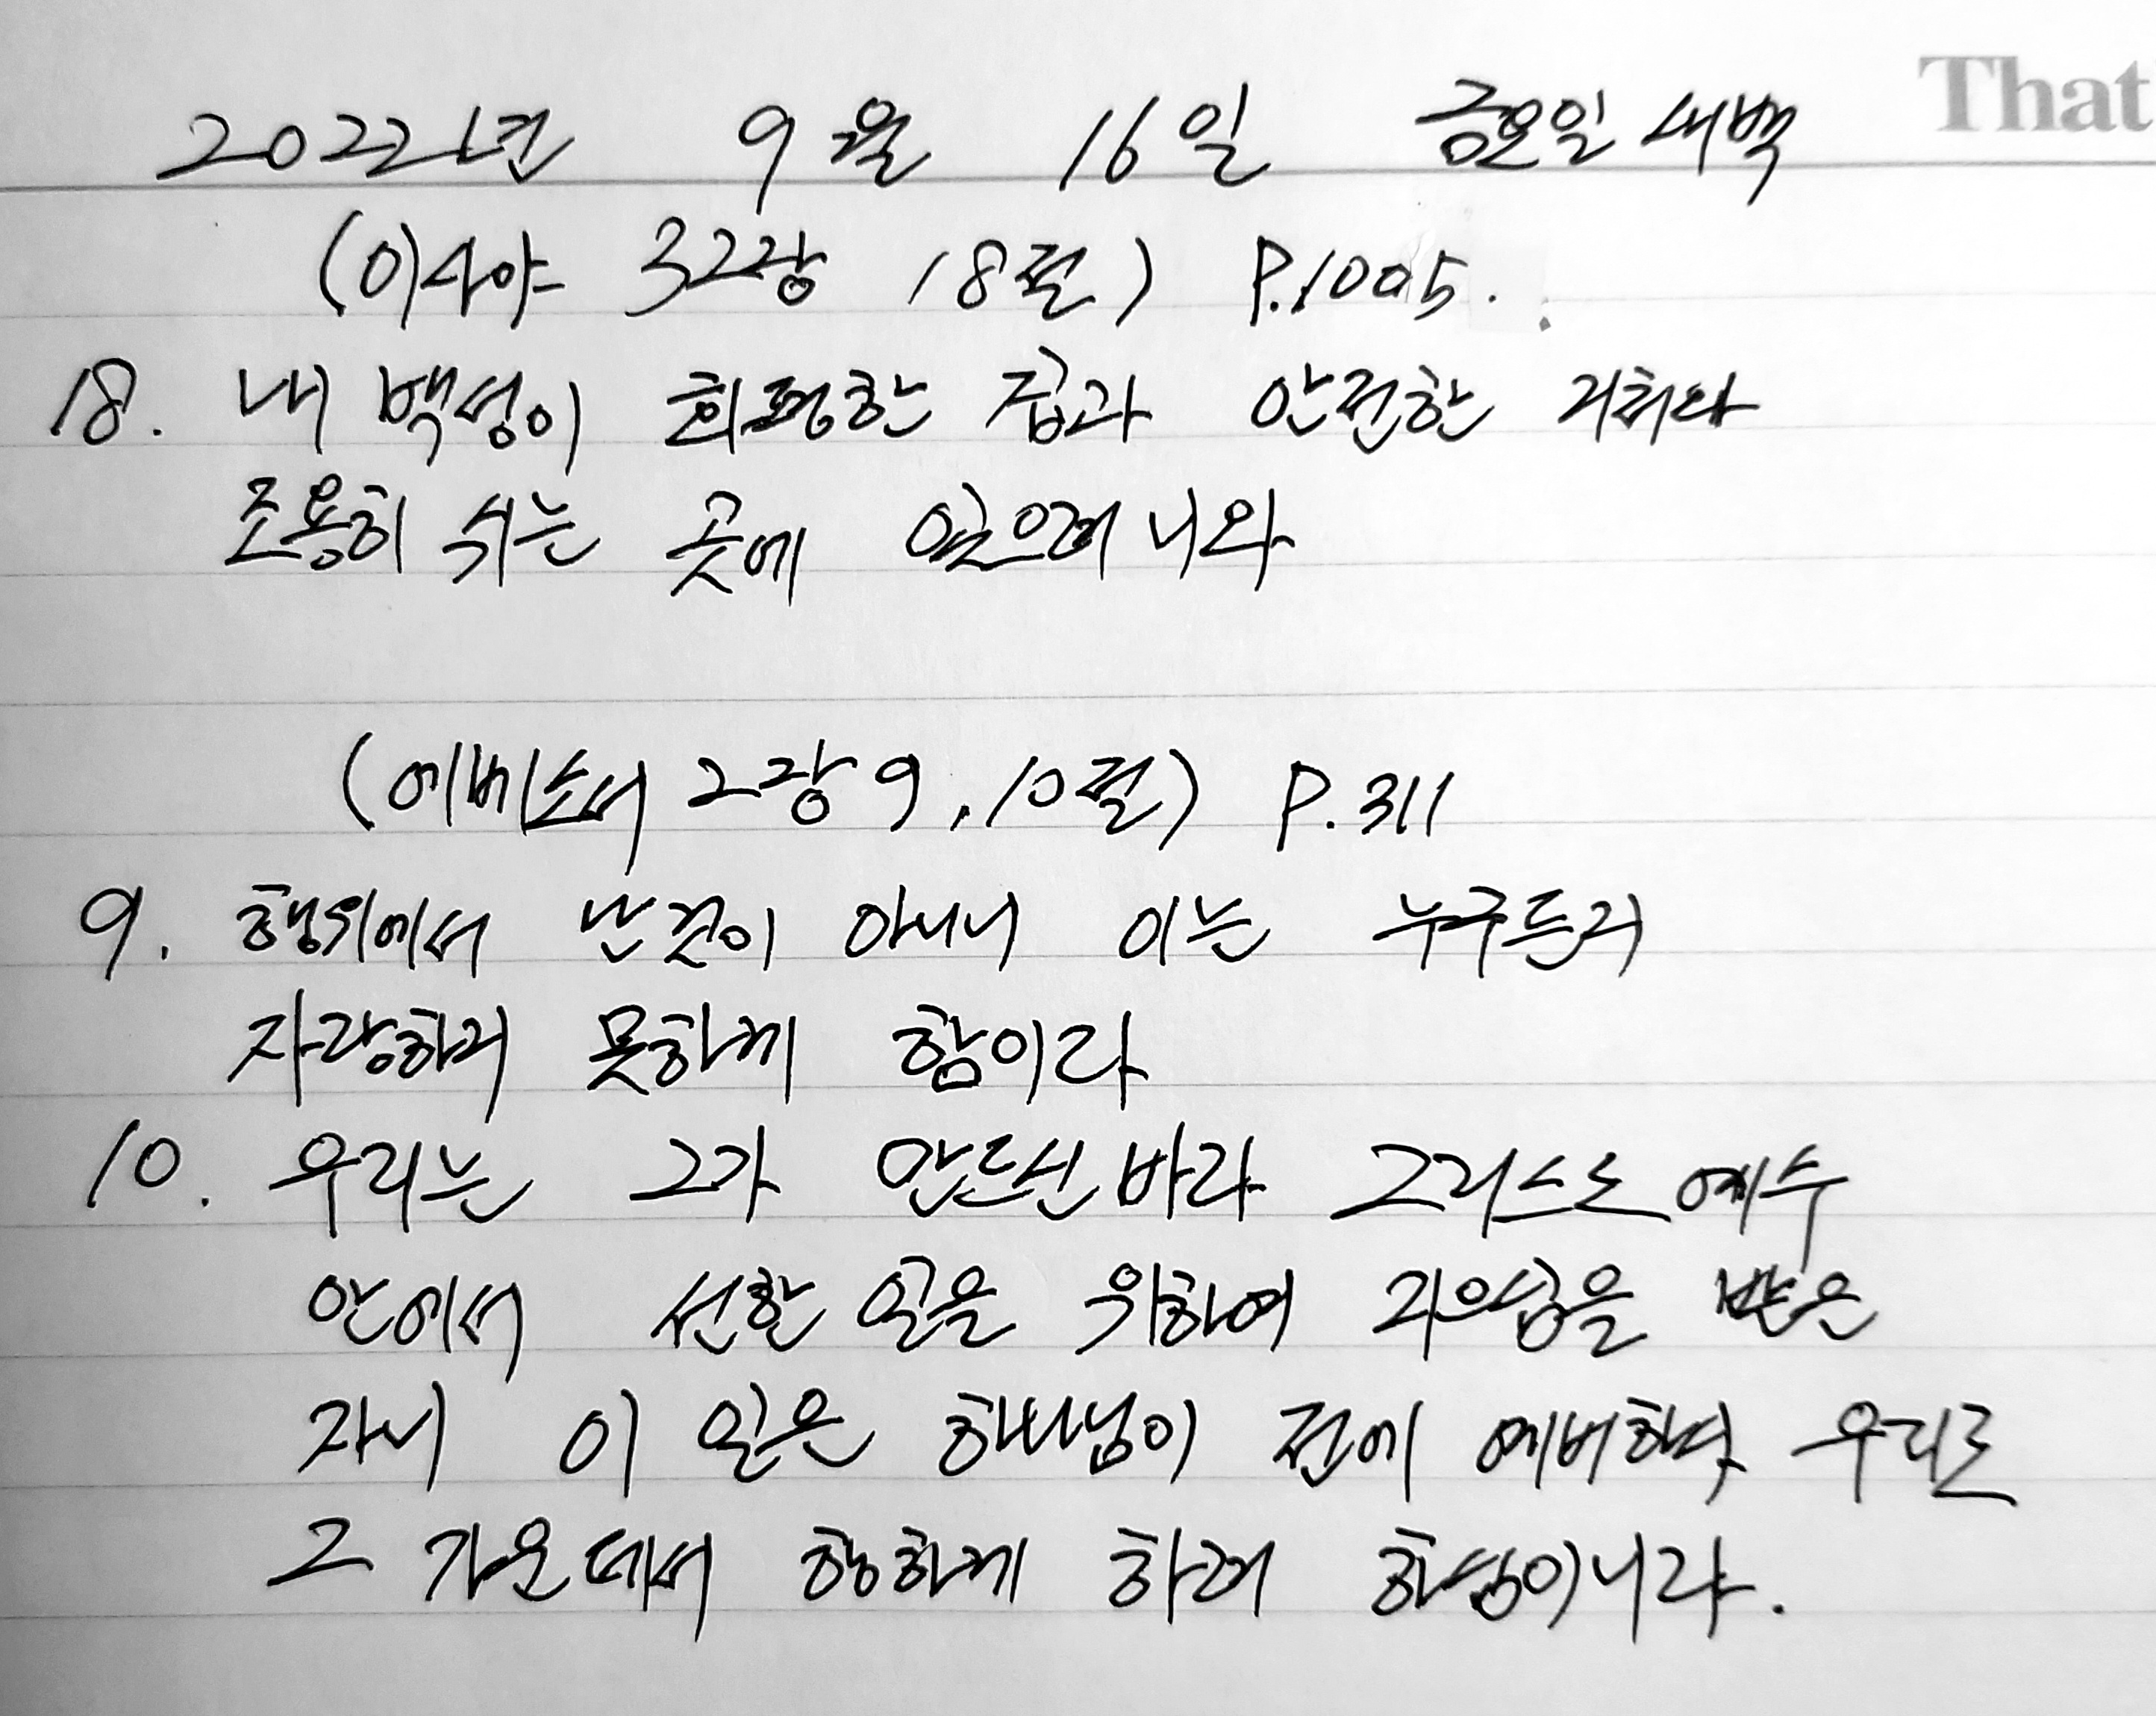 That
2022년 9월 16일 금요일 새벽
(이사야 32장 18절) P.1005.
18. 내 백성이 화평한 집과 안전한 거처와
조용히 쉬는 곳에 있으려니와
(에베소서 2장 9, 10절) P.311
9. 행위에서 난것이 아니니 이는 누구든지
자랑하지 못하게 함이라
10. 우리는 그가 만드신 바라 그리스도 예수
안에서 선한 일을 위하여 지으심을 받은
자니 이 일은 하나님이 전에 예비하사 우리로
그 가운데서 행하게 하려 하심이니라.